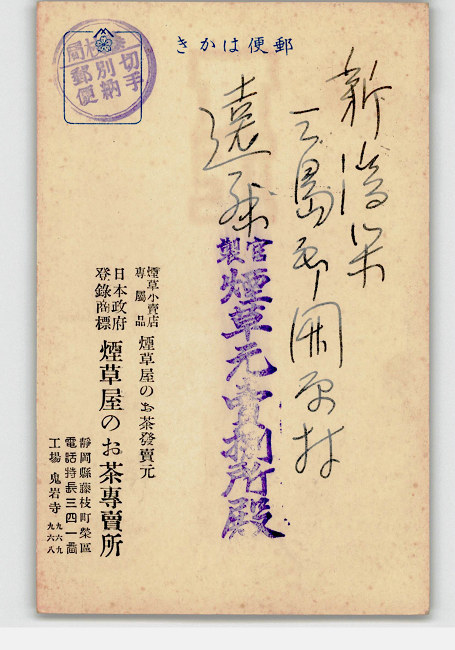 郵便はかき
藤枝局
切手
別納
郵便
新潟県
三島郡関原村
遠藤
官製
煙草元賣捌所殿
煙草小賣店
專屬品
煙草屋のお茶發賣元
日本政府
登錄商標
煙草屋のお茶專賣所
靜岡縣藤枝町榮區
電話特長三四一番
工場 鬼岩寺
九六九
九六八